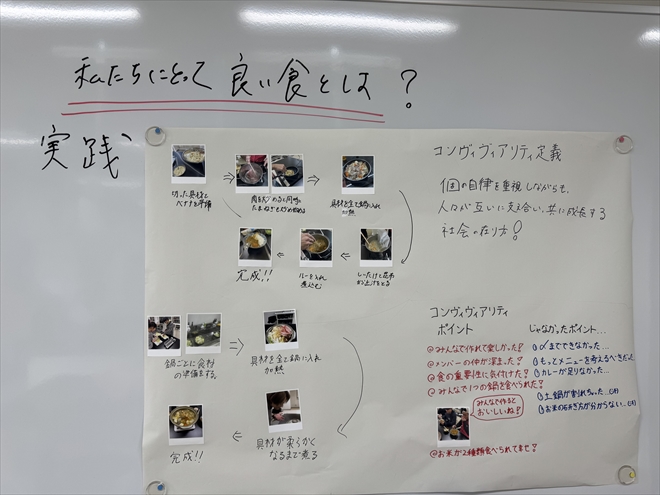 私たちにとって 良い食とは？
実践
切った具材と
完成!!
ルーを入れ
煮込む
具材を全て鍋に入れ
加熱
鍋ごとに食材
の準備をする。
具材を全て鍋に入れ
加熱
具材が柔らかく
なるまで煮る
完成!!
コンヴィヴィアリティ定義
個の自律を重視しながらも、
人々が互いに支え合い、共に成長する
社会の在り方!
コンヴィヴィアリティ
ポイント
@みんなで作れて楽しかった!
@メンバーの仲が深まった!
@食の重要性に気付けた!
@みんなで1つの鍋を食べられた!
みんなで作ると
おいしいね!
@お米が2種類食べられてませ?
じゃなかったポイント...
〆までできなかった...
もっとメニューを考えるべきだった
カレーが足りなかった...
土鍋が割れちゃった...
お米の研ぎ方が分からない...